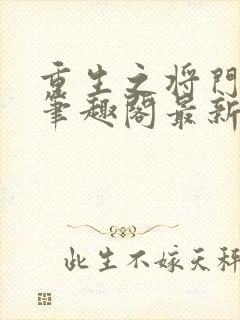 重生之将门
筆趣閣最新
此生不嫁天秤